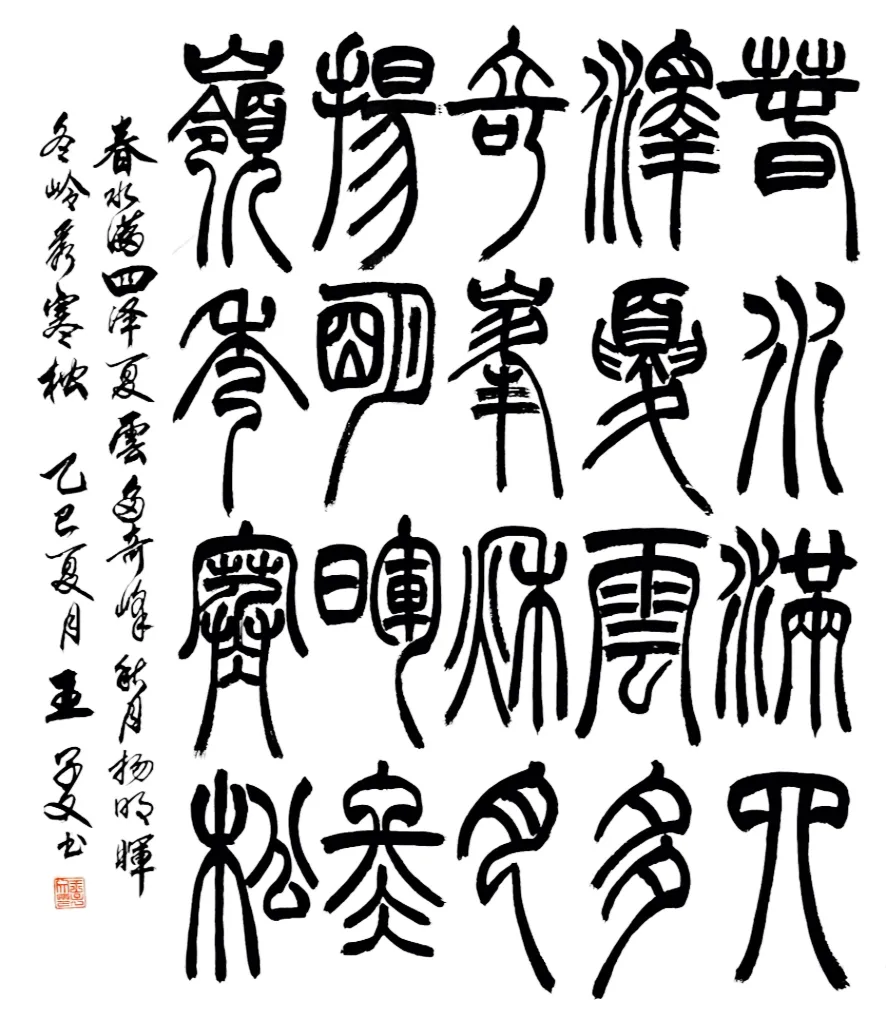 春水滿四
澤夏雲多
奇峯秋月
揚明暉冬
嶺秀寒松
春水满四泽夏雲多奇峰秋月扬明暉
冬岭秀寒松 乙巳夏月 王文书